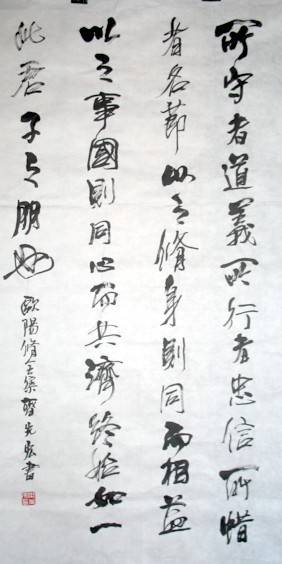 所守者道義所行者忠信所惜
者名節以之脩身則同而相益
以之事國則同心而共濟終始如一
此君子之朋也
歐陽脩 書